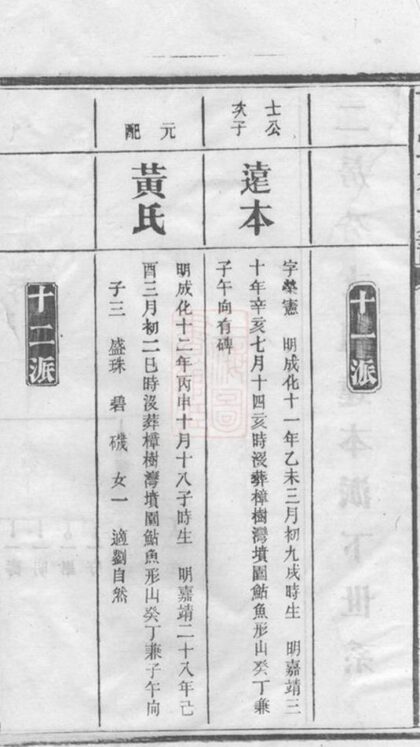 十一派
士公
次子
達本
字榮憲 明成化十一年乙未三月初九戌時生 明嘉靖三
十年辛亥七月十四亥時沒葬樟樹灣墳圖鮎魚形山癸丁兼
子午向有碑
元配
黃氏
明成化十二年丙申十月十八子時生 明嘉靖二十八年己
酉三月初二巳時沒葬樟樹灣墳圖鮎魚形山癸丁兼子午向
子三 盛珠 碧 磯 女一 適劉自然
十二派